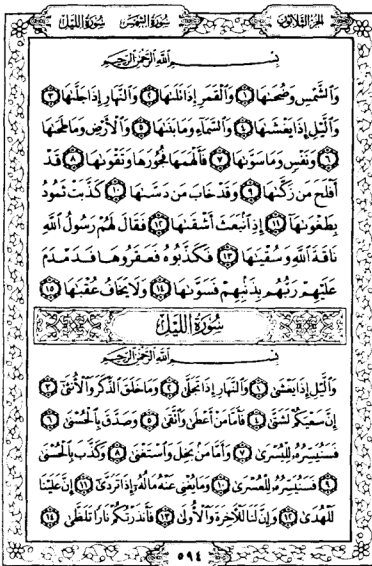 الجزء الثلاثون سورة الشمس سورة الليل
بِسْمِ ٱللَّهِ ٱلرَّحْمَٰنِ ٱلرَّحِيمِ
وَٱلشَّمْسِ وَضُحَىٰهَا ١ وَٱلْقَمَرِ إِذَا تَلَىٰهَا ٢ وَٱلنَّهَارِ إِذَا جَلَّىٰهَا ٣
وَٱلَّيْلِ إِذَا يَغْشَىٰهَا ٤ وَٱلسَّمَآءِ وَمَا بَنَىٰهَا ٥ وَٱلْأَرْضِ وَمَا طَحَىٰهَا
٦ وَنَفْسٍ وَمَا سَوَّىٰهَا ٧ فَأَلْهَمَهَا فُجُورَهَا وَتَقْوَىٰهَا ٨ قَدْ
أَفْلَحَ مَن زَكَّىٰهَا ٩ وَقَدْ خَابَ مَن دَسَّىٰهَا ١٠ كَذَّبَتْ ثَمُودُ
بِطَغْوَىٰهَآ ١١ إِذِ ٱنۢبَعَثَ أَشْقَىٰهَا ١٢ فَقَالَ لَهُمْ رَسُولُ ٱللَّهِ
نَاقَةَ ٱللَّهِ وَسُقْيَٰهَا ١٣ فَكَذَّبُوهُ فَعَقَرُوهَا فَدَمْدَمَ
عَلَيْهِمْ رَبُّهُم بِذَنۢبِهِمْ فَسَوَّىٰهَا ١٤ وَلَا يَخَافُ عُقْبَٰهَا ١٥
سُورَةُ اللَّيْلِ
بِسْمِ ٱللَّهِ ٱلرَّحْمَٰنِ ٱلرَّحِيمِ
وَٱلَّيْلِ إِذَا يَغْشَىٰ ١ وَٱلنَّهَارِ إِذَا تَجَلَّىٰ ٢ وَمَا خَلَقَ ٱلذَّكَرَ وَٱلْأُنثَىٰٓ ٣
إِنَّ سَعْيَكُمْ لَشَتَّىٰ ٤ فَأَمَّا مَنْ أَعْطَىٰ وَٱتَّقَىٰ ٥ وَصَدَّقَ بِٱلْحُسْنَىٰ ٦
فَسَنُيَسِّرُهُۥ لِلْيُسْرَىٰ ٧ وَأَمَّا مَنۢ بَخِلَ وَٱسْتَغْنَىٰ ٨ وَكَذَّبَ بِٱلْحُسْنَىٰ
٩ فَسَنُيَسِّرُهُۥ لِلْعُسْرَىٰ ١٠ وَمَا يُغْنِى عَنْهُ مَالُهُۥٓ إِذَا تَرَدَّىٰٓ ١١ إِنَّ عَلَيْنَا
لَلْهُدَىٰ ١٢ وَإِنَّ لَنَا لَلْءَاخِرَةَ وَٱلْأُولَىٰ ١٣ فَأَنذَرْتُكُمْ نَارًا تَلَظَّىٰ ١٤
٥٩٤